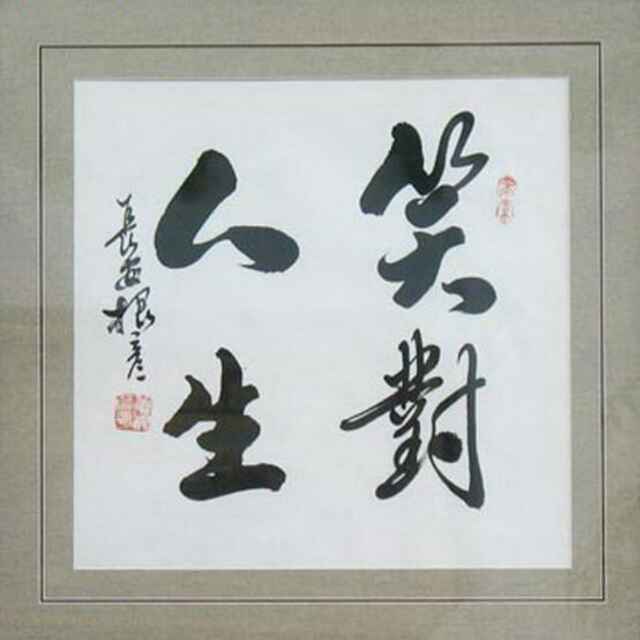 笑對
人生
長安根彥